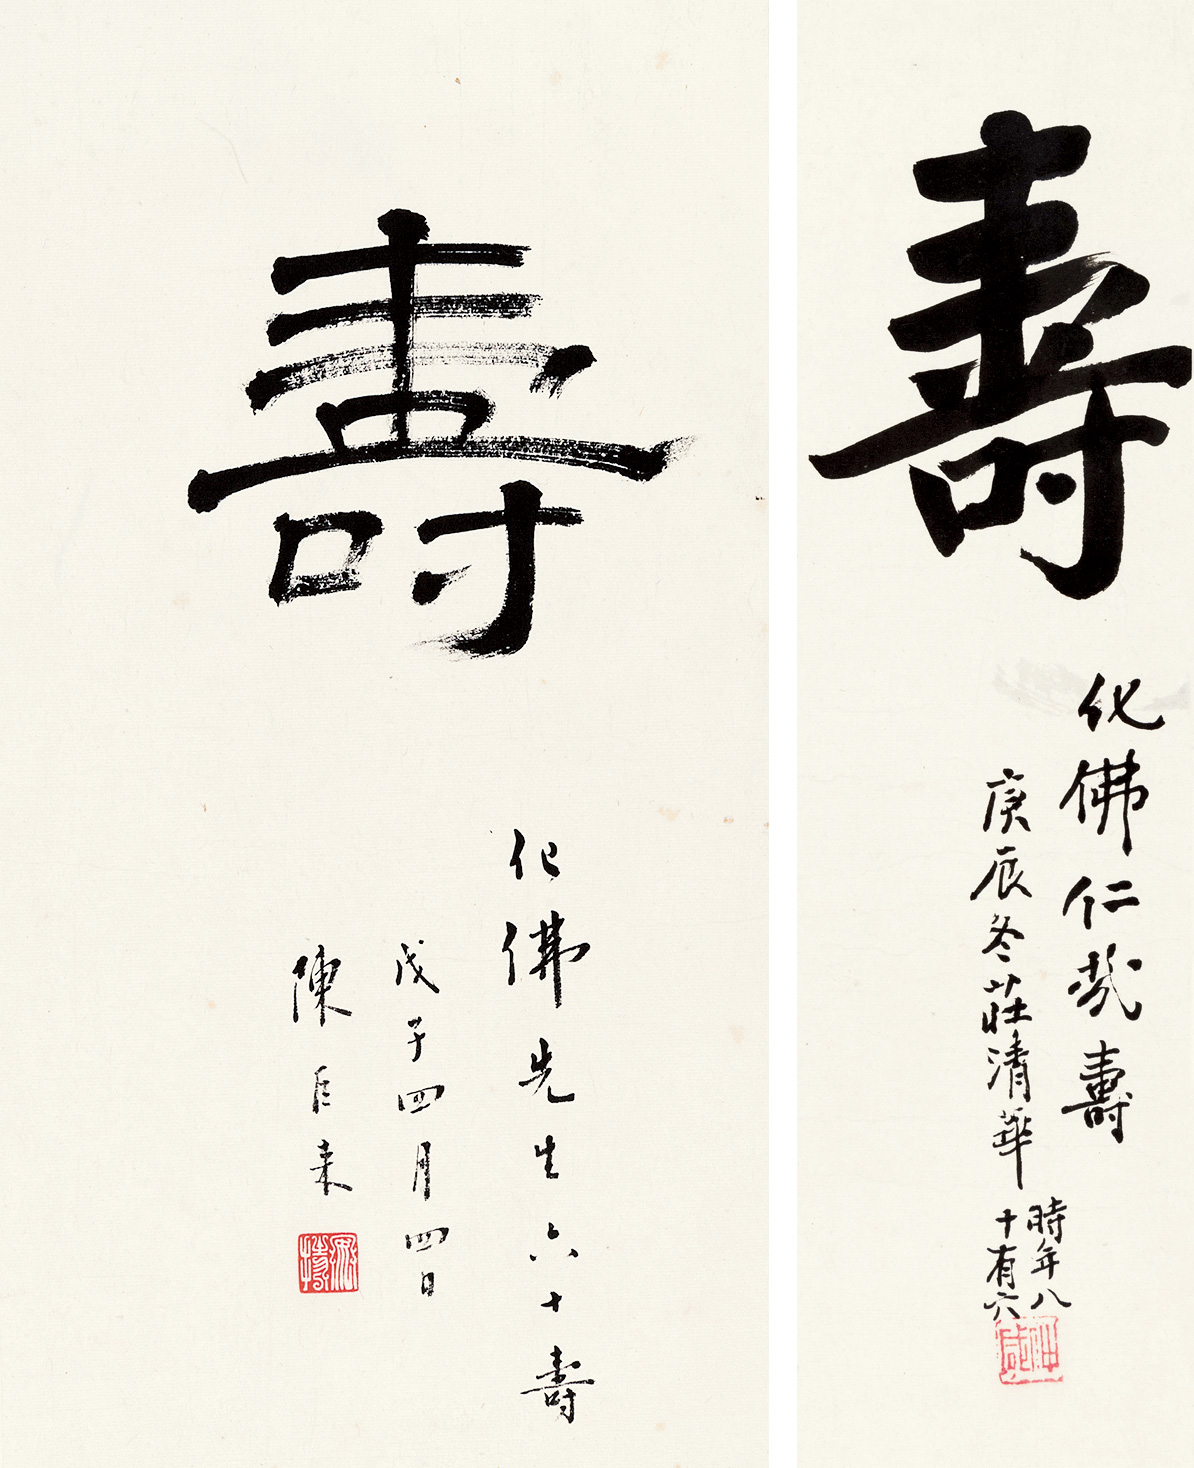 壽
化佛先生六十壽
戊子四月四日
陳巨來
壽
化佛仁哉壽
庚辰冬莊清華
時年八
十有六
仲咸